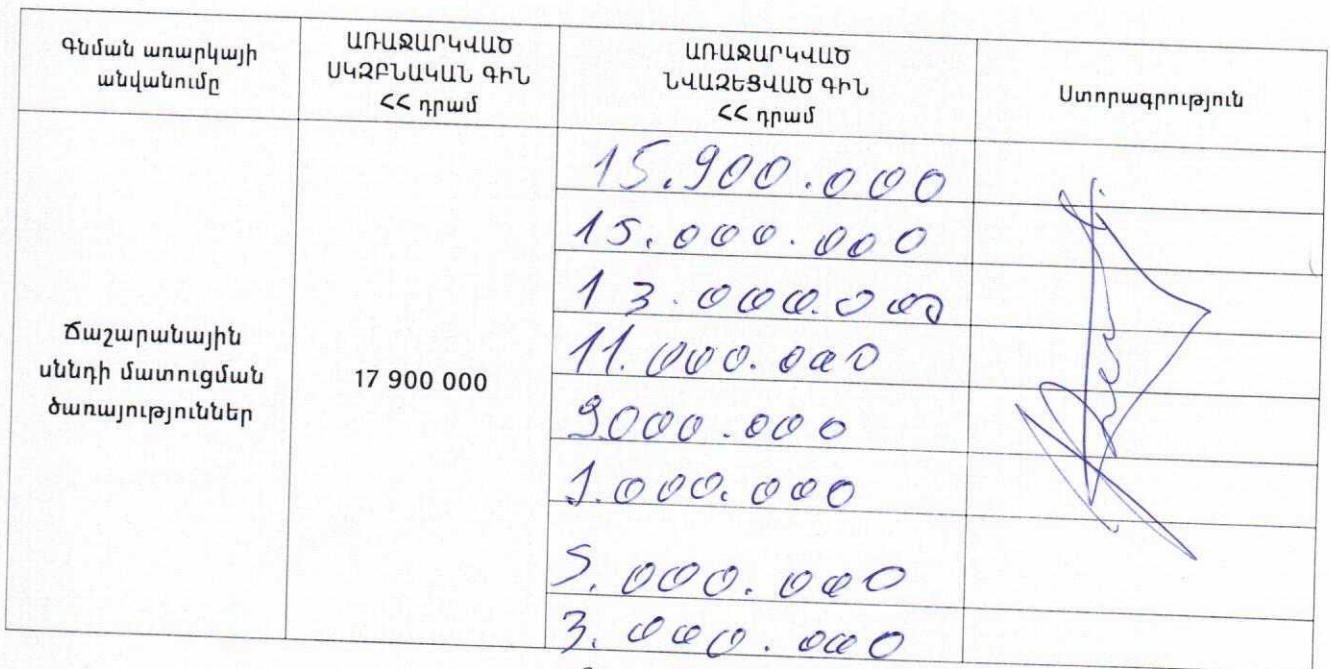 Գնման առարկայի
անվանումը
ԱՌԱՋԱՐԿՎԱԾ
ՍԿԶԲՆԱԿԱՆ ԳԻՆ
ՀՀ դրամ
ԱՌԱՋԱՐԿՎԱԾ
ՆՎԱԶԵՑՎԱԾ ԳԻՆ
ՀՀ դրամ
Ստորագրություն
Ճաշարանային
սննդի մատուցման
ծառայություններ
17 900 000
15.900.000
15.000.000
13.000.000
11.000.000
9000.000
5.000.000
3.000.000